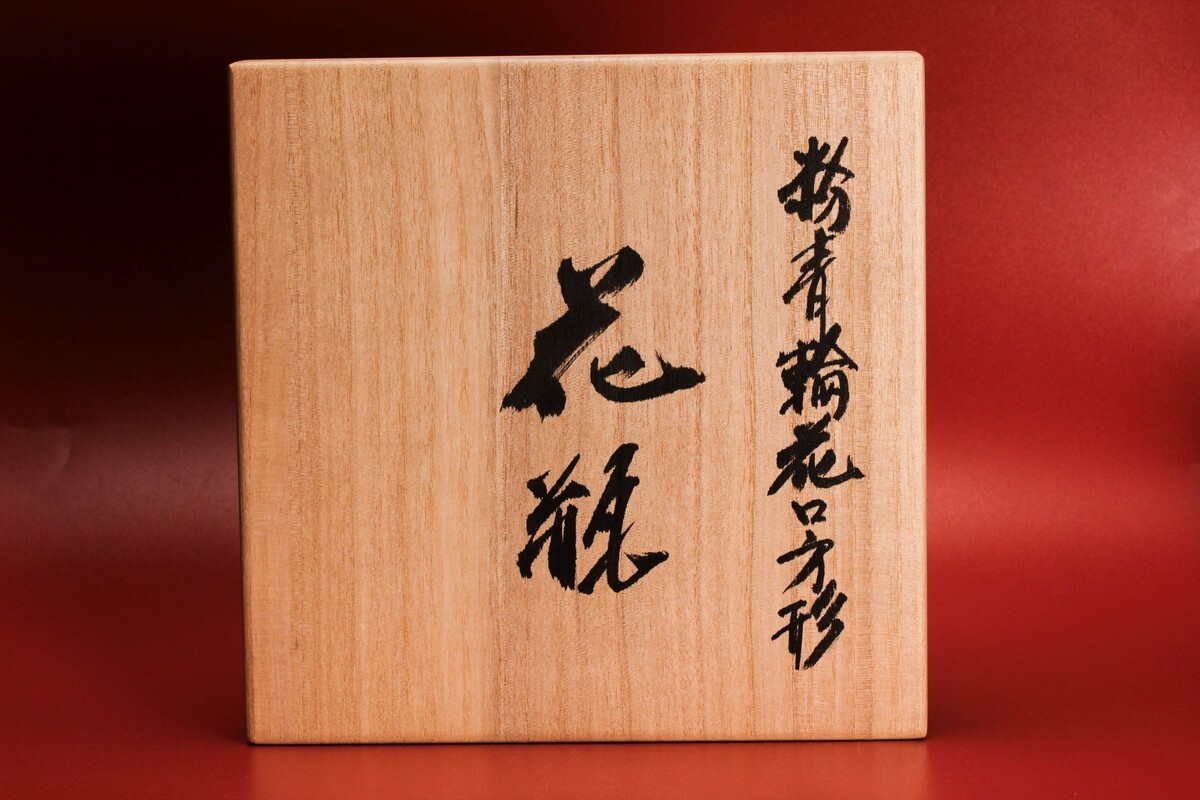 粉青輪花口方形
花瓶